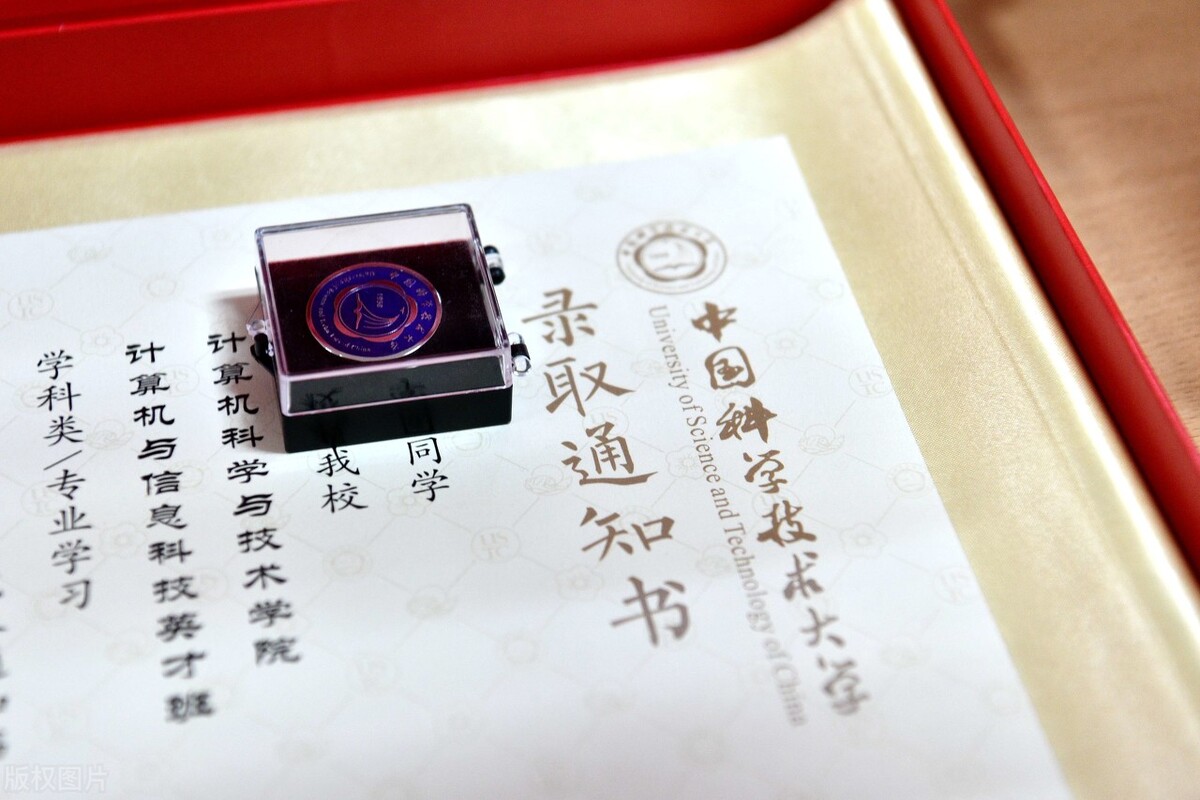 中国科学技术大学
University of Science and Technology of China
录取通知书
同学
我校
计算机科学与技术学院
计算机与信息科技英才班
学科类/专业学习
1958
版权图片